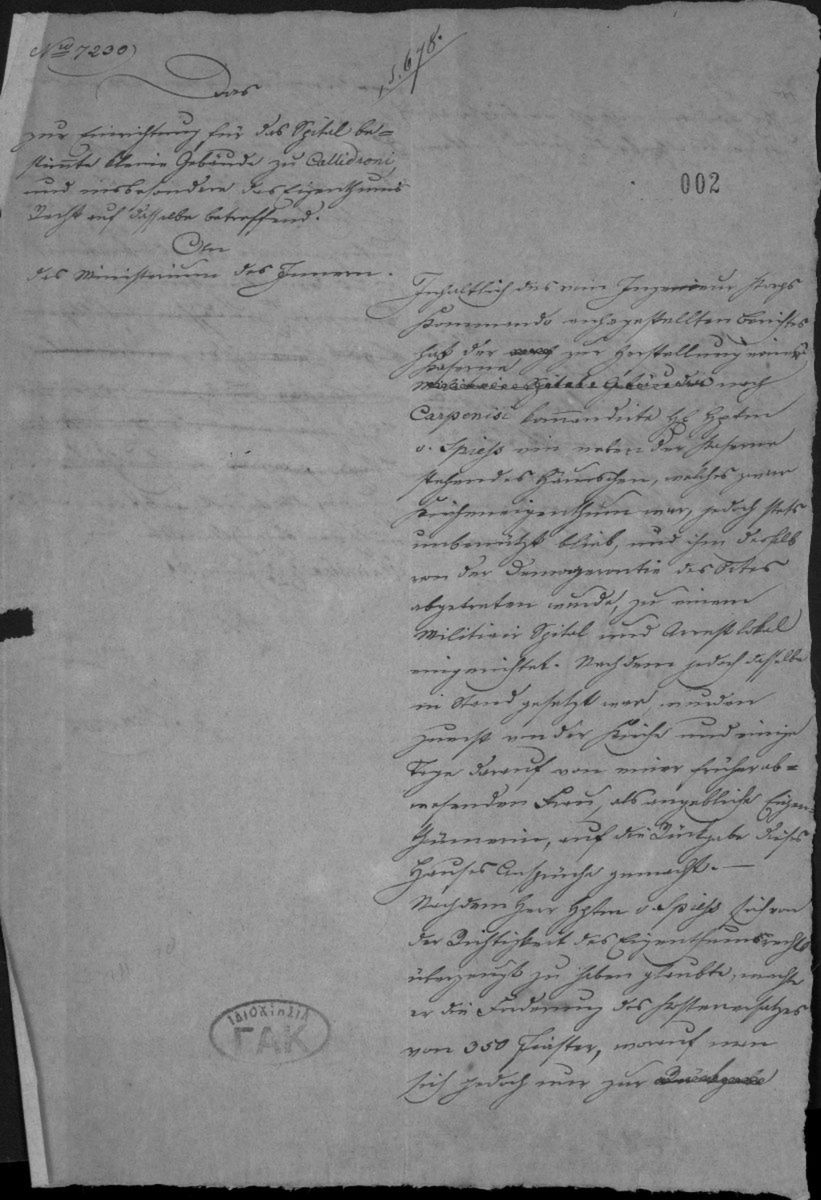 Nro 7230
15.678.
Das
zur Einrichtung für das Spital be=
stimmte kleine Gebäude zu Callidroni,
und insbesondere das Eigenthums
Recht auf dasselbe betreffend.
An
das Ministerium des Innern.
002
Inhaltlich des vom Ingenieur Korps
Kommando anhergestellten Berichtes
hat der zur Herstellung einer
Kaserne
nach
Carpenisi kommandirte H. Hptm
v. Spiess ein neben der Kaserne
stehendes Häuschen, welches zwar
Kircheneigenthum war, jedoch stets
unbenützt blieb, und ihm deshalb
von der Demogerontie des Ortes
abgetreten wurde, zu einem
Militair Spital und Arrestlokal
eingerichtet. Nachdem jedoch dasselbe
in Stand gesetzt war, wurden
zuerst von der Kirche und einige
Tage darauf von einer früher ab=
wesenden Frau, als angebliche Eigen=
thümerin, auf die Rückgabe dieses
Hauses Ansprüche gemacht. —
Nachdem Herr Hptm v. Spiess sich von
der Richtigkeit des Eigenthumsrechts
überzeugt zu haben glaubte, machte
er die Forderung des Kostenersatzes
von 350 Piaster, worauf man
sich jedoch nur zur
ΙΔΙΟΚΤΗΣΙΑ
ΓΑΚ